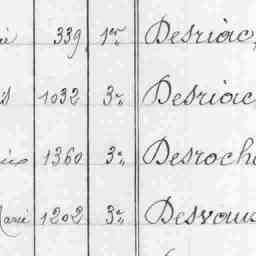 339 1re Desriac,
1032 3e Desriac
1360 3e Desroche
Marie 1202 3e Desvaux